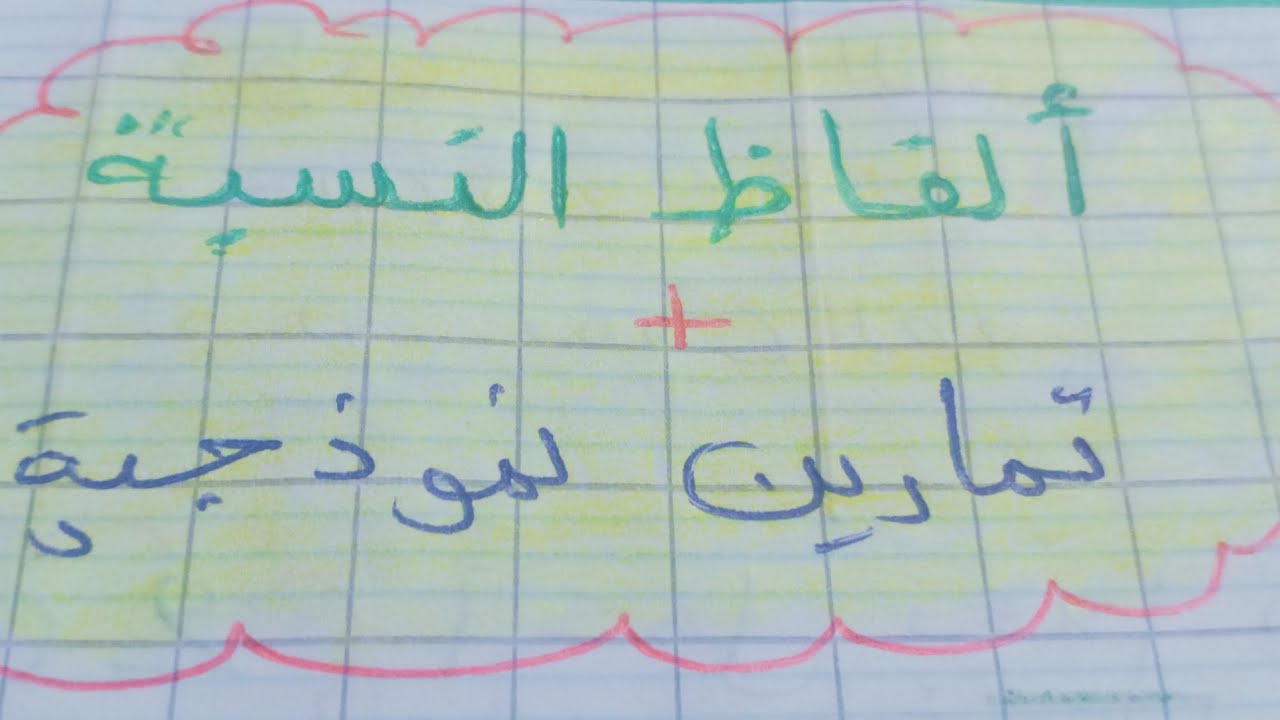 ألفاظ النسبة
+
تمارين نموذجية